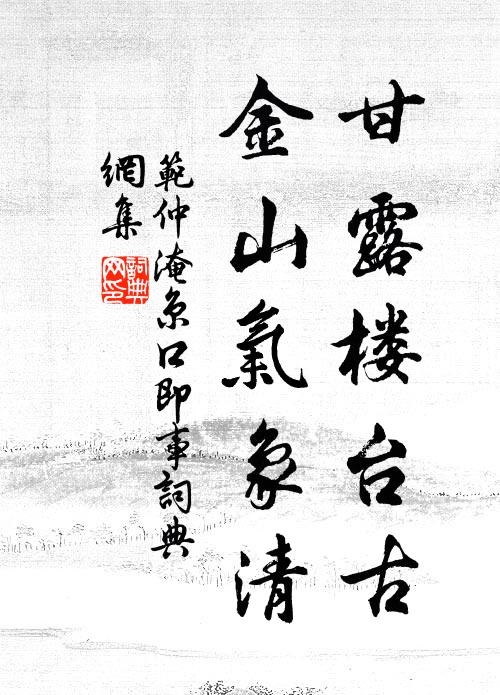 甘露楼台古
金山氣象清
範仲淹京口即事詞典
網集
詞典网印